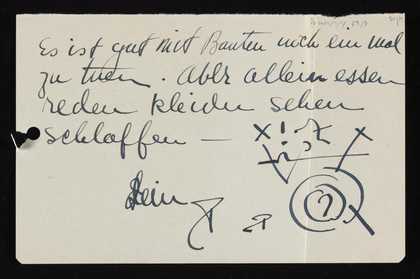 Es ist gut mit Bauten mich ein mal
zu tuen. Aber allein essen
reden kleiden sehen
schlaffen —
Dein